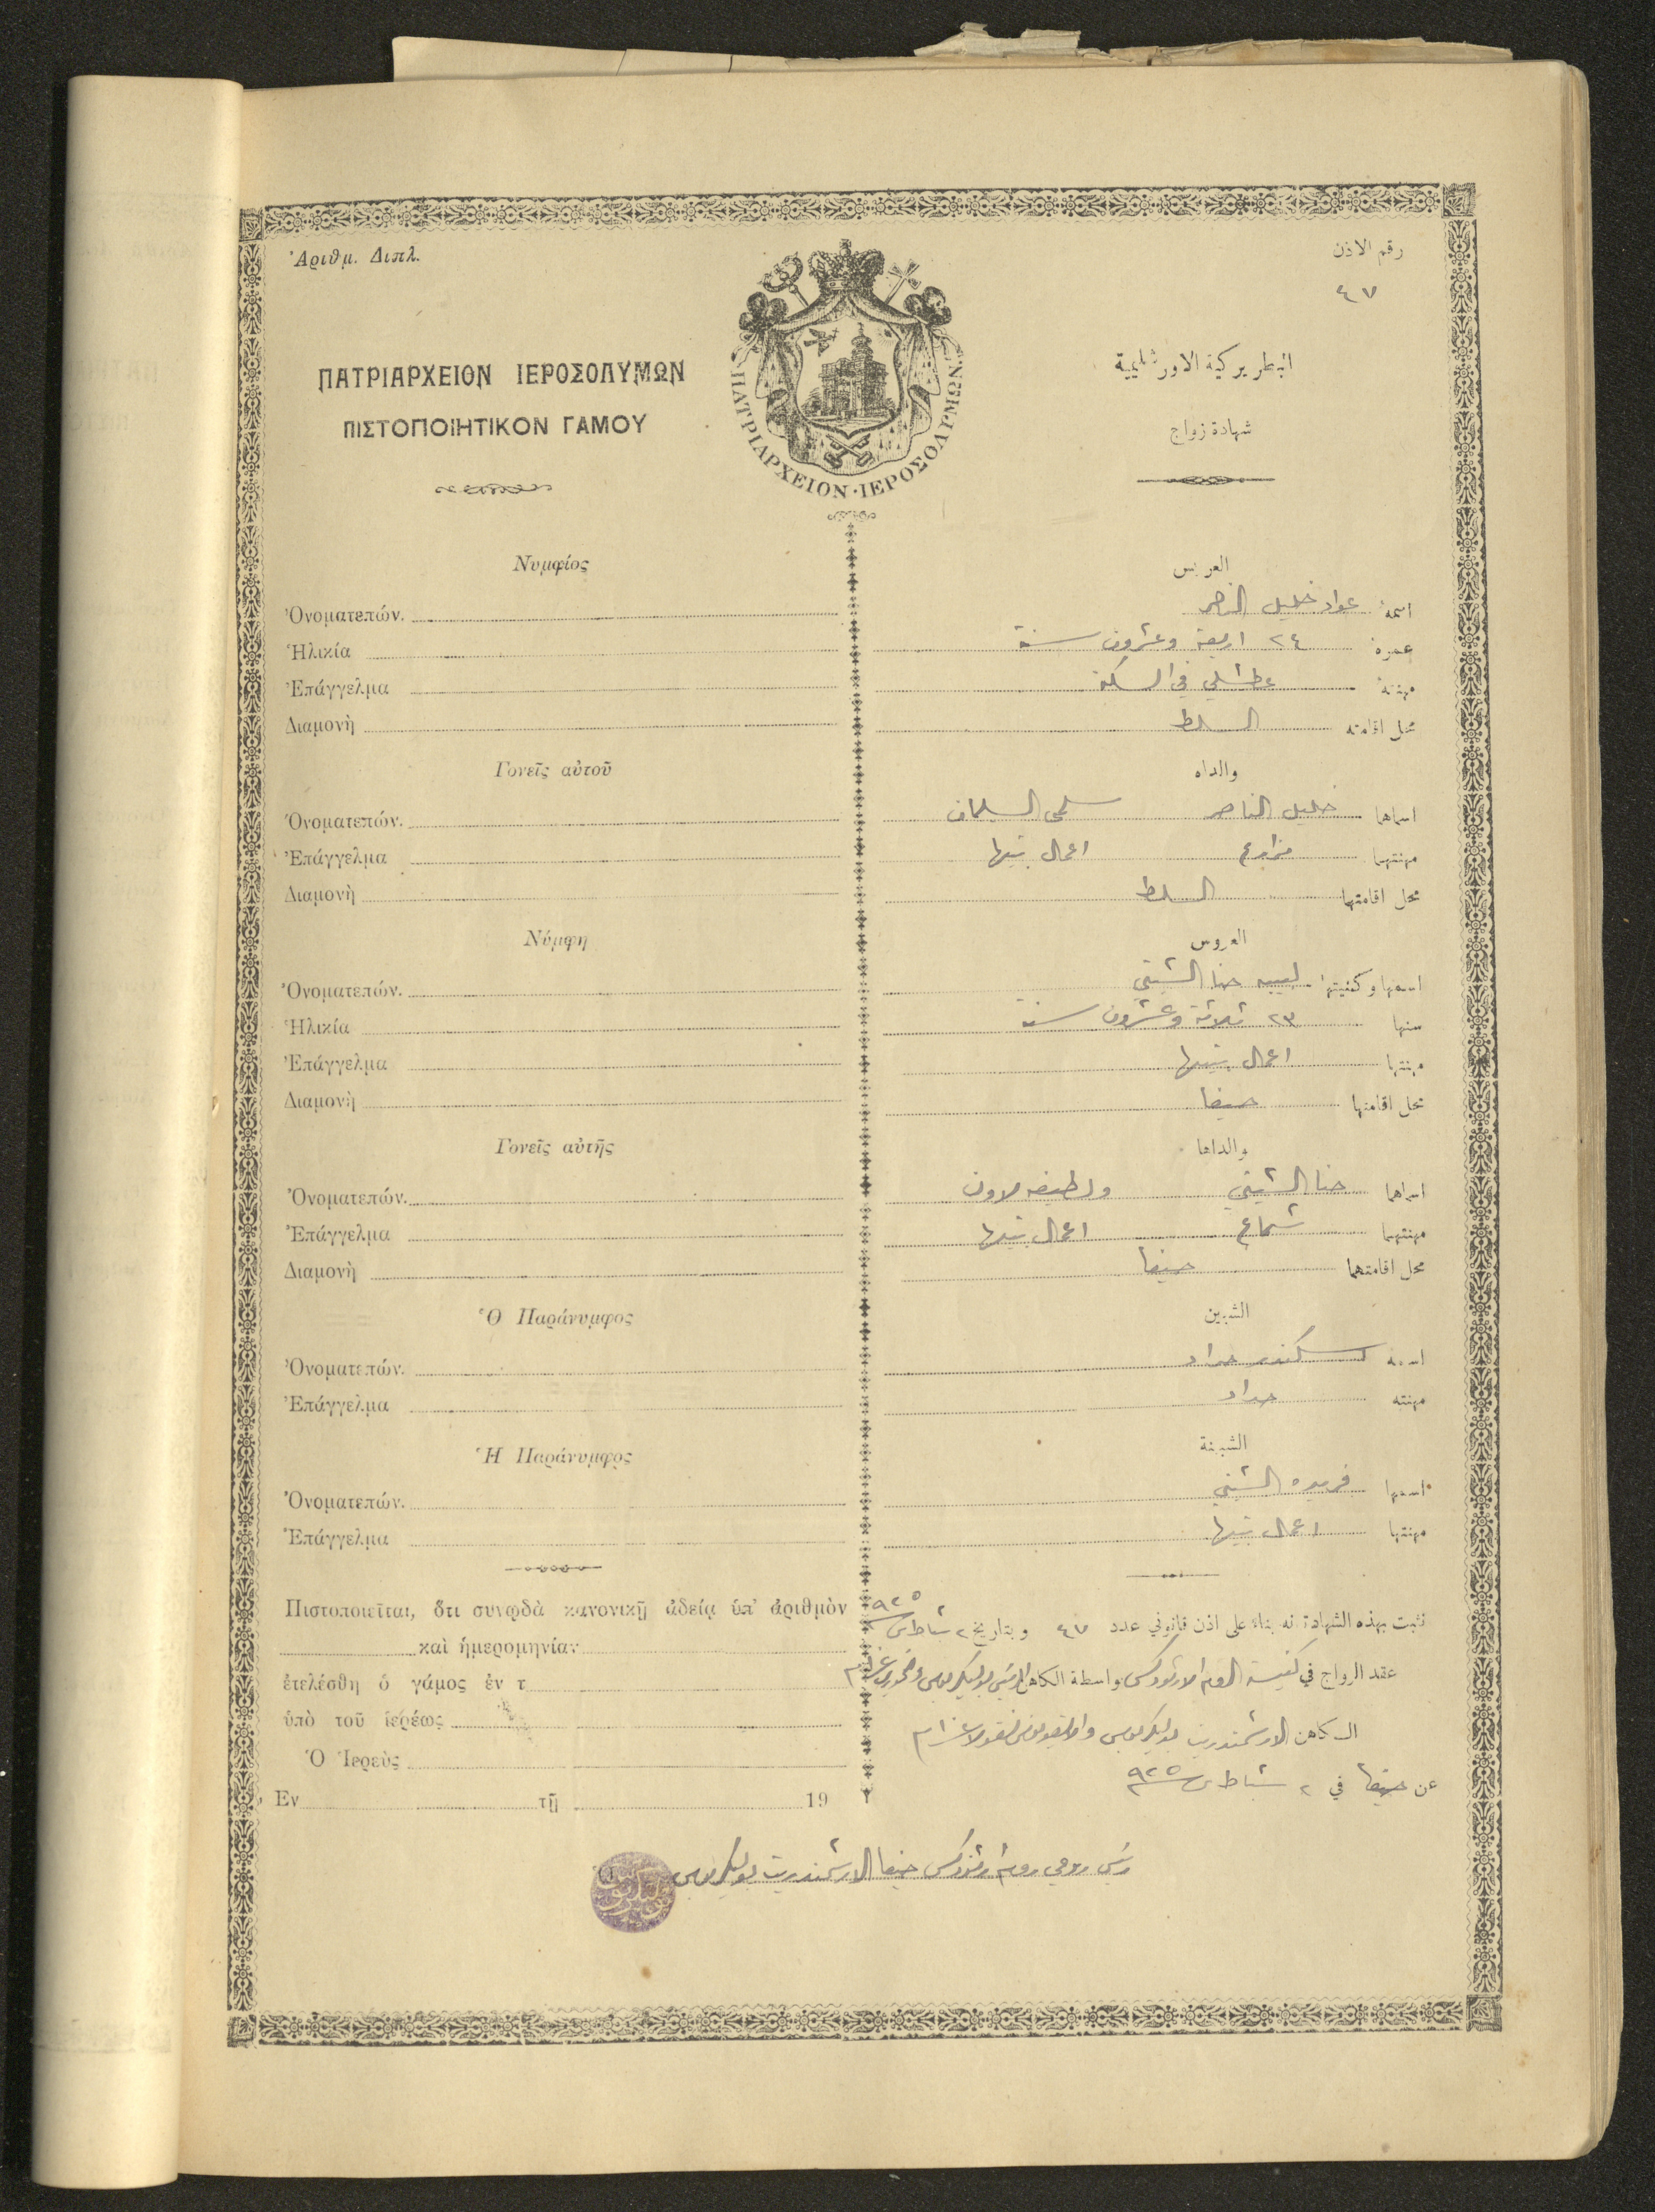 Ἀριθμ. Διπλ.
رقم الاذن
٤٧
ΠΑΤΡΙΑΡΧΕΙΟΝ ΙΕΡΟΣΟΛΥΜΩΝ
ΠΙΣΤΟΠΟΙΗΤΙΚΟΝ ΓΑΜΟΥ
ΠΑΤΡΙΑΡΧΕΙΟΝ·ΙΕΡΟΣΟΛΥΜΩΝ
البطريركية الاورشليمية
شهادة زواج
Νυμφίος
Ὀνοματεπών.
Ἡλικία
Ἐπάγγελμα
Διαμονὴ
Γονεῖς αὐτοῦ
Ὀνοματεπών.
Ἐπάγγελμα
Διαμονὴ
Νύμφη
Ὀνοματεπών.
Ἡλικία
Ἐπάγγελμα
Διαμονὴ
Γονεῖς αὐτῆς
Ὀνοματεπών.
Ἐπάγγελμα
Διαμονὴ
Ὁ Παράνυμφος
Ὀνοματεπών.
Ἐπάγγελμα
Ἡ Παράνυμφος
Ὀνοματεπών.
Ἐπάγγελμα
Πιστοποιεῖται, ὅτι συνῳδὰ κανονικῇ ἀδείᾳ ὑπ' ἀριθμὸν
καὶ ἡμερομηνίαν
ἐτελέσθη ὁ γάμος ἐν τ
ὑπὸ τοῦ ἱερέως
Ὁ Ἱερεὺς
Ἐν τῇ 19
العريس
اسمه عواد خليل الناصر
عمره ٢٤ اربعة وعشرون سنة
مهنته عطشلي في السكة
محل اقامته السلط
والداه
اسماهما خليل الناصر سلمى السليمان
مهنتهما مزارع اعمال بيتها
محل اقامتهما السلط
العروس
اسمها وكنيتها لبيبه حنا الشيتي
سنها ٢٣ ثلاثة وعشرون سنة
مهنتها اعمال بيتها
محل اقامتها حيفا
والداها
اسماهما حنا الشيتي ولطيفه
مهنتهما شماع اعمال بيتها
محل اقامتهما حيفا
الشبين
اسمه اسكندر حداد
مهنته حداد
الشبينة
اسمها فريده الشيتي
مهنتها اعمال بيتها
نثبت بهذه الشهادة انه بناء على اذن قانوني عدد ٤٧ وبتاريخ ٢ شباط س ٩٢٥
عقد الزواج في كنيسة الروم الارثوذكس بواسطة الكاهن الرئيس بوليكربوس والخوري عزام
الكاهن الارشمندريت بوليكربوس نقولا عزام
عن حيفا في ٢ شباط س ٩٢٥
رئيس روحي روم ارثوذكس حيفا الارشمندريت بوليكربوس